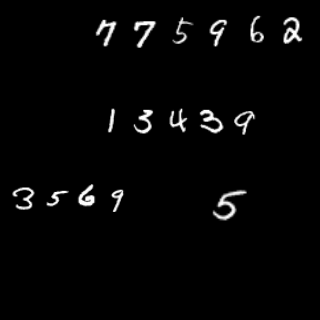 775962
13439
3569 5